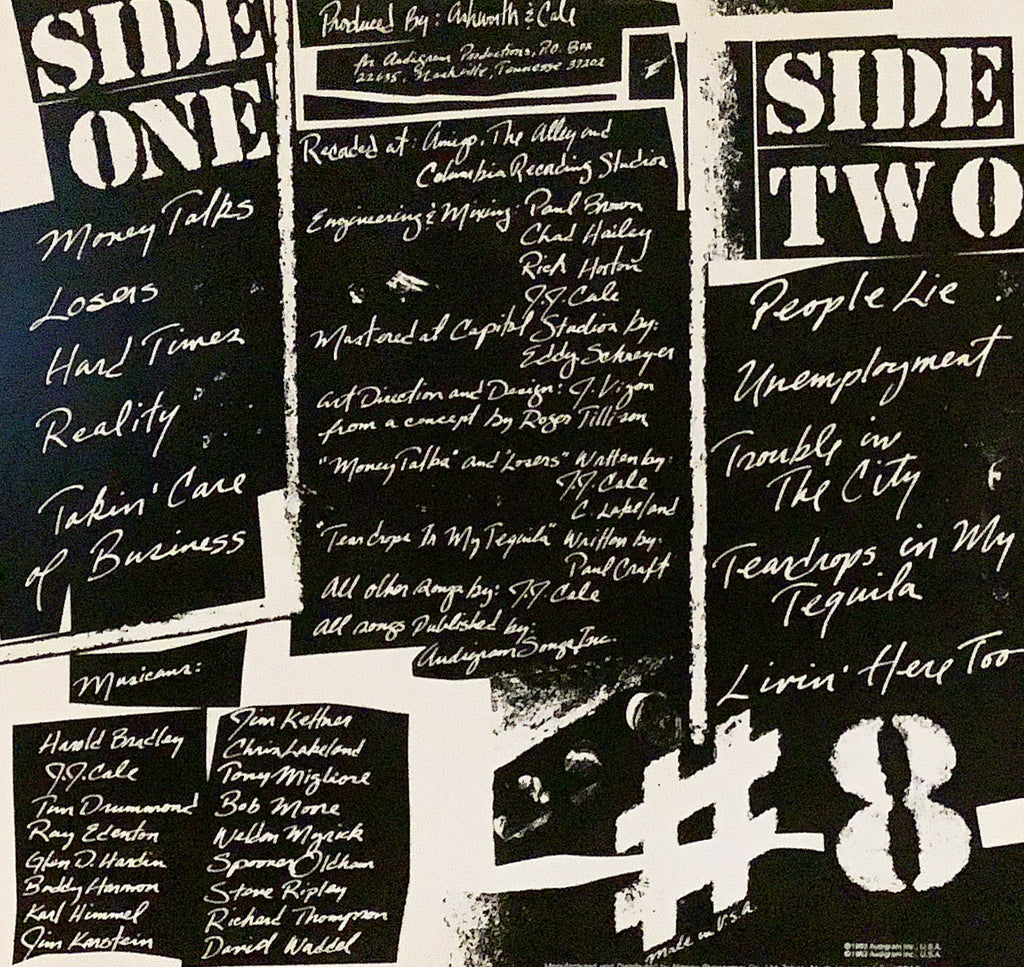 SIDE
ONE
Money Talks
Losers
Hard Times
Reality
Takin' Care
of Business
Produced By: Ashworth & Cale
for Audigram Productions, P.O. Box
22635, Nashville, Tennessee 37202
Recorded at: Amigo, The Alley and
Columbia Recording Studios
Engineering & Mixing: Paul Brown
Chad Hailey
Rich Horton
J.J. Cale
Mastered at Capitol Studios by:
Eddy Schreyer
Art Direction and Design: J. Vigon
from a concept by Roger Tillison
"Money Talks" and "Losers" Written by:
J.J. Cale
C. Lakeland
"Teardrops In My Tequila" Written by:
Paul Craft
All other songs by: J.J. Cale
All songs Published by:
Audigram Songs Inc.
SIDE
TWO
People Lie
Unemployment
Trouble in
The City
Teardrops in My
Tequila
Livin' Here Too
Musicans:
Harold Bradley
J.J. Cale
Tim Drummond
Ray Edenton
Glen D. Hardin
Buddy Harmon
Karl Himmel
Jim Karstein
Jim Keltner
Chris Lakeland
Tony Migliore
Bob Moore
Weldon Myrick
Spooner Oldham
Steve Ripley
Richard Thompson
David Waddel
#8
Made in U.S.A.
©1983 Audigram Inc., U.S.A.
©1983 Audigram Inc., U.S.A.